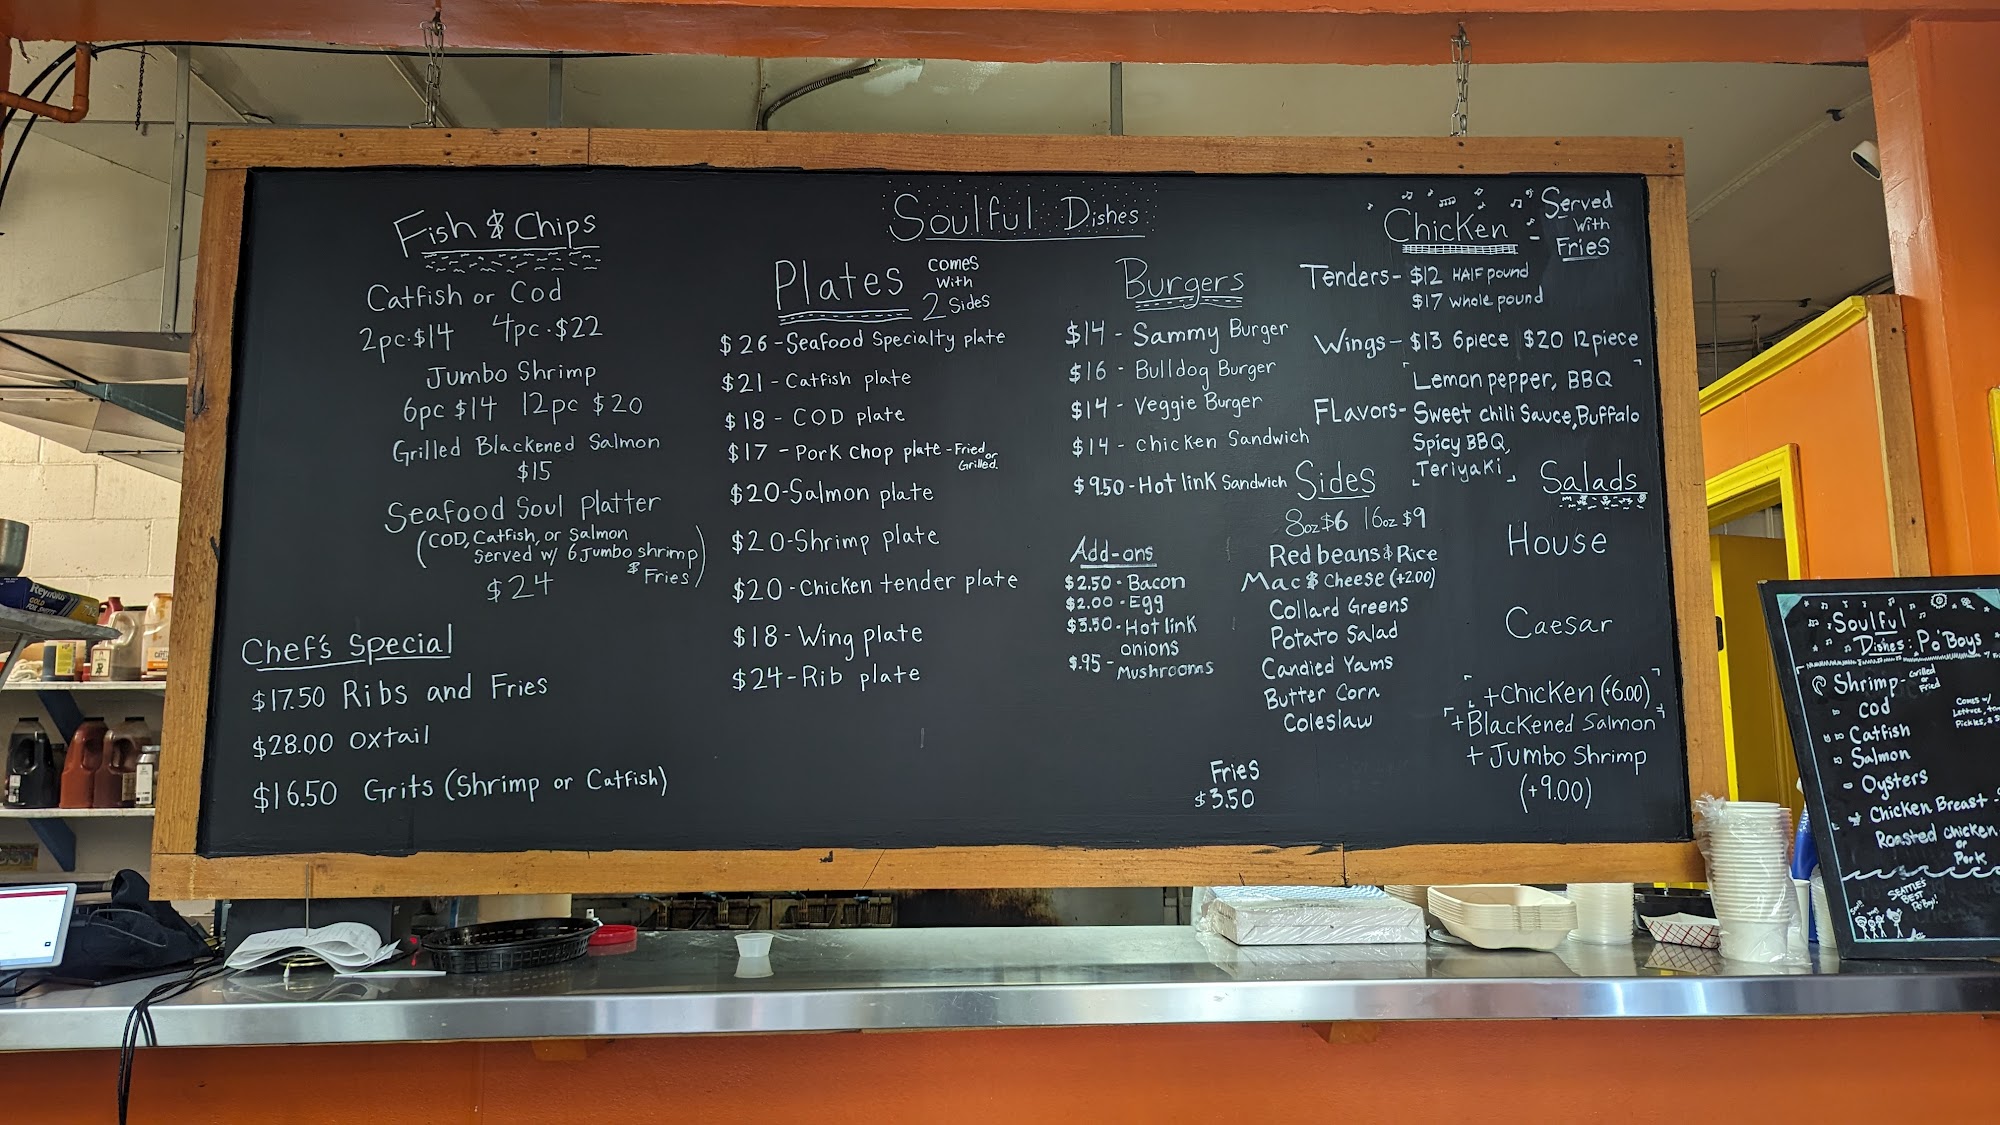 Fish & Chips
Catfish or Cod
2pc·$14 4pc·$22
Jumbo Shrimp
6pc $14 12pc $20
Grilled Blackened Salmon
$15
Seafood Soul Platter
(COD, Catfish, or Salmon
Served w/ 6 Jumbo shrimp
& Fries)
$24
Chef's Special
$17.50 Ribs and Fries
$28.00 Oxtail
$16.50 Grits (Shrimp or Catfish)
Soulful Dishes
Plates
Comes
With
2 Sides
$26-Seafood Specialty plate
$21-Catfish plate
$18-COD plate
$17-Pork Chop plate-Fried or
Grilled.
$20-Salmon plate
$20-Shrimp plate
$20-Chicken tender plate
$18-Wing plate
$24-Rib plate
Burgers
$14-Sammy Burger
$16-Bulldog Burger
$14-Veggie Burger
$14-Chicken Sandwich
$9.50-Hot link Sandwich
Add-ons
$2.50-Bacon
$2.00-Egg
$3.50-Hot link
onions
$.95-Mushrooms
Sides
8oz $6 16oz $9
Red beans & Rice
Mac & Cheese (+2.00)
Collard Greens
Potato Salad
Candied Yams
Butter Corn
Coleslaw
Fries
$3.50
Chicken - Served
With
Fries
Tenders-$12 HAlf pound
$17 whole pound
Wings-$13 6piece $20 12piece
Lemon pepper, BBQ
FLavors-Sweet chili Sauce, Buffalo
Spicy BBQ,
Teriyaki
Salads
House
Caesar
+Chicken (+6.00)
+Blackened Salmon
+Jumbo Shrimp
(+9.00)
Soulful
Dishes: Po'Boys
Shrimp-Grilled
or
Fried
Cod
Catfish
Salmon
Oysters
Chicken Breast-
Roasted chicken
or
Pork
Comes w/
Lettuce,
Pickles, &
SEATTLE'S
BEST
Po'Boy!
Reynolds